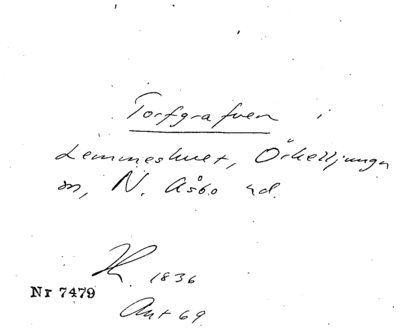 Torfgrafven i
Lemmeshuet, Örkelljunga
sn, N. Åsbo hd.
K. 1836
Ant 69
Nr 7479